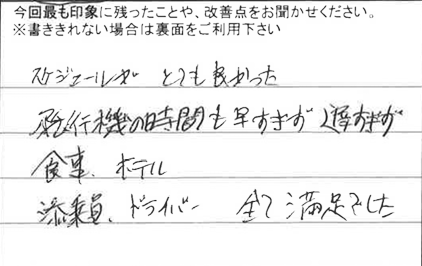 今回最も印象に残ったことや、改善点をお聞かせください。
※書ききれない場合は裏面をご利用下さい
スケジュールが とても良かった
飛行機の時間も早すぎず 遅すぎず
食事、ホテル
添乗員、ドライバー 全て満足でした